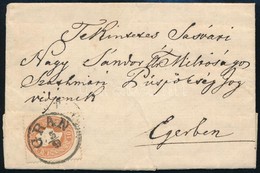 Tekintetes Sasvári
Nagy Sándor Ő Méltósága
Szathmári Püspökség Jog
védjenek
Egerben
GRAN